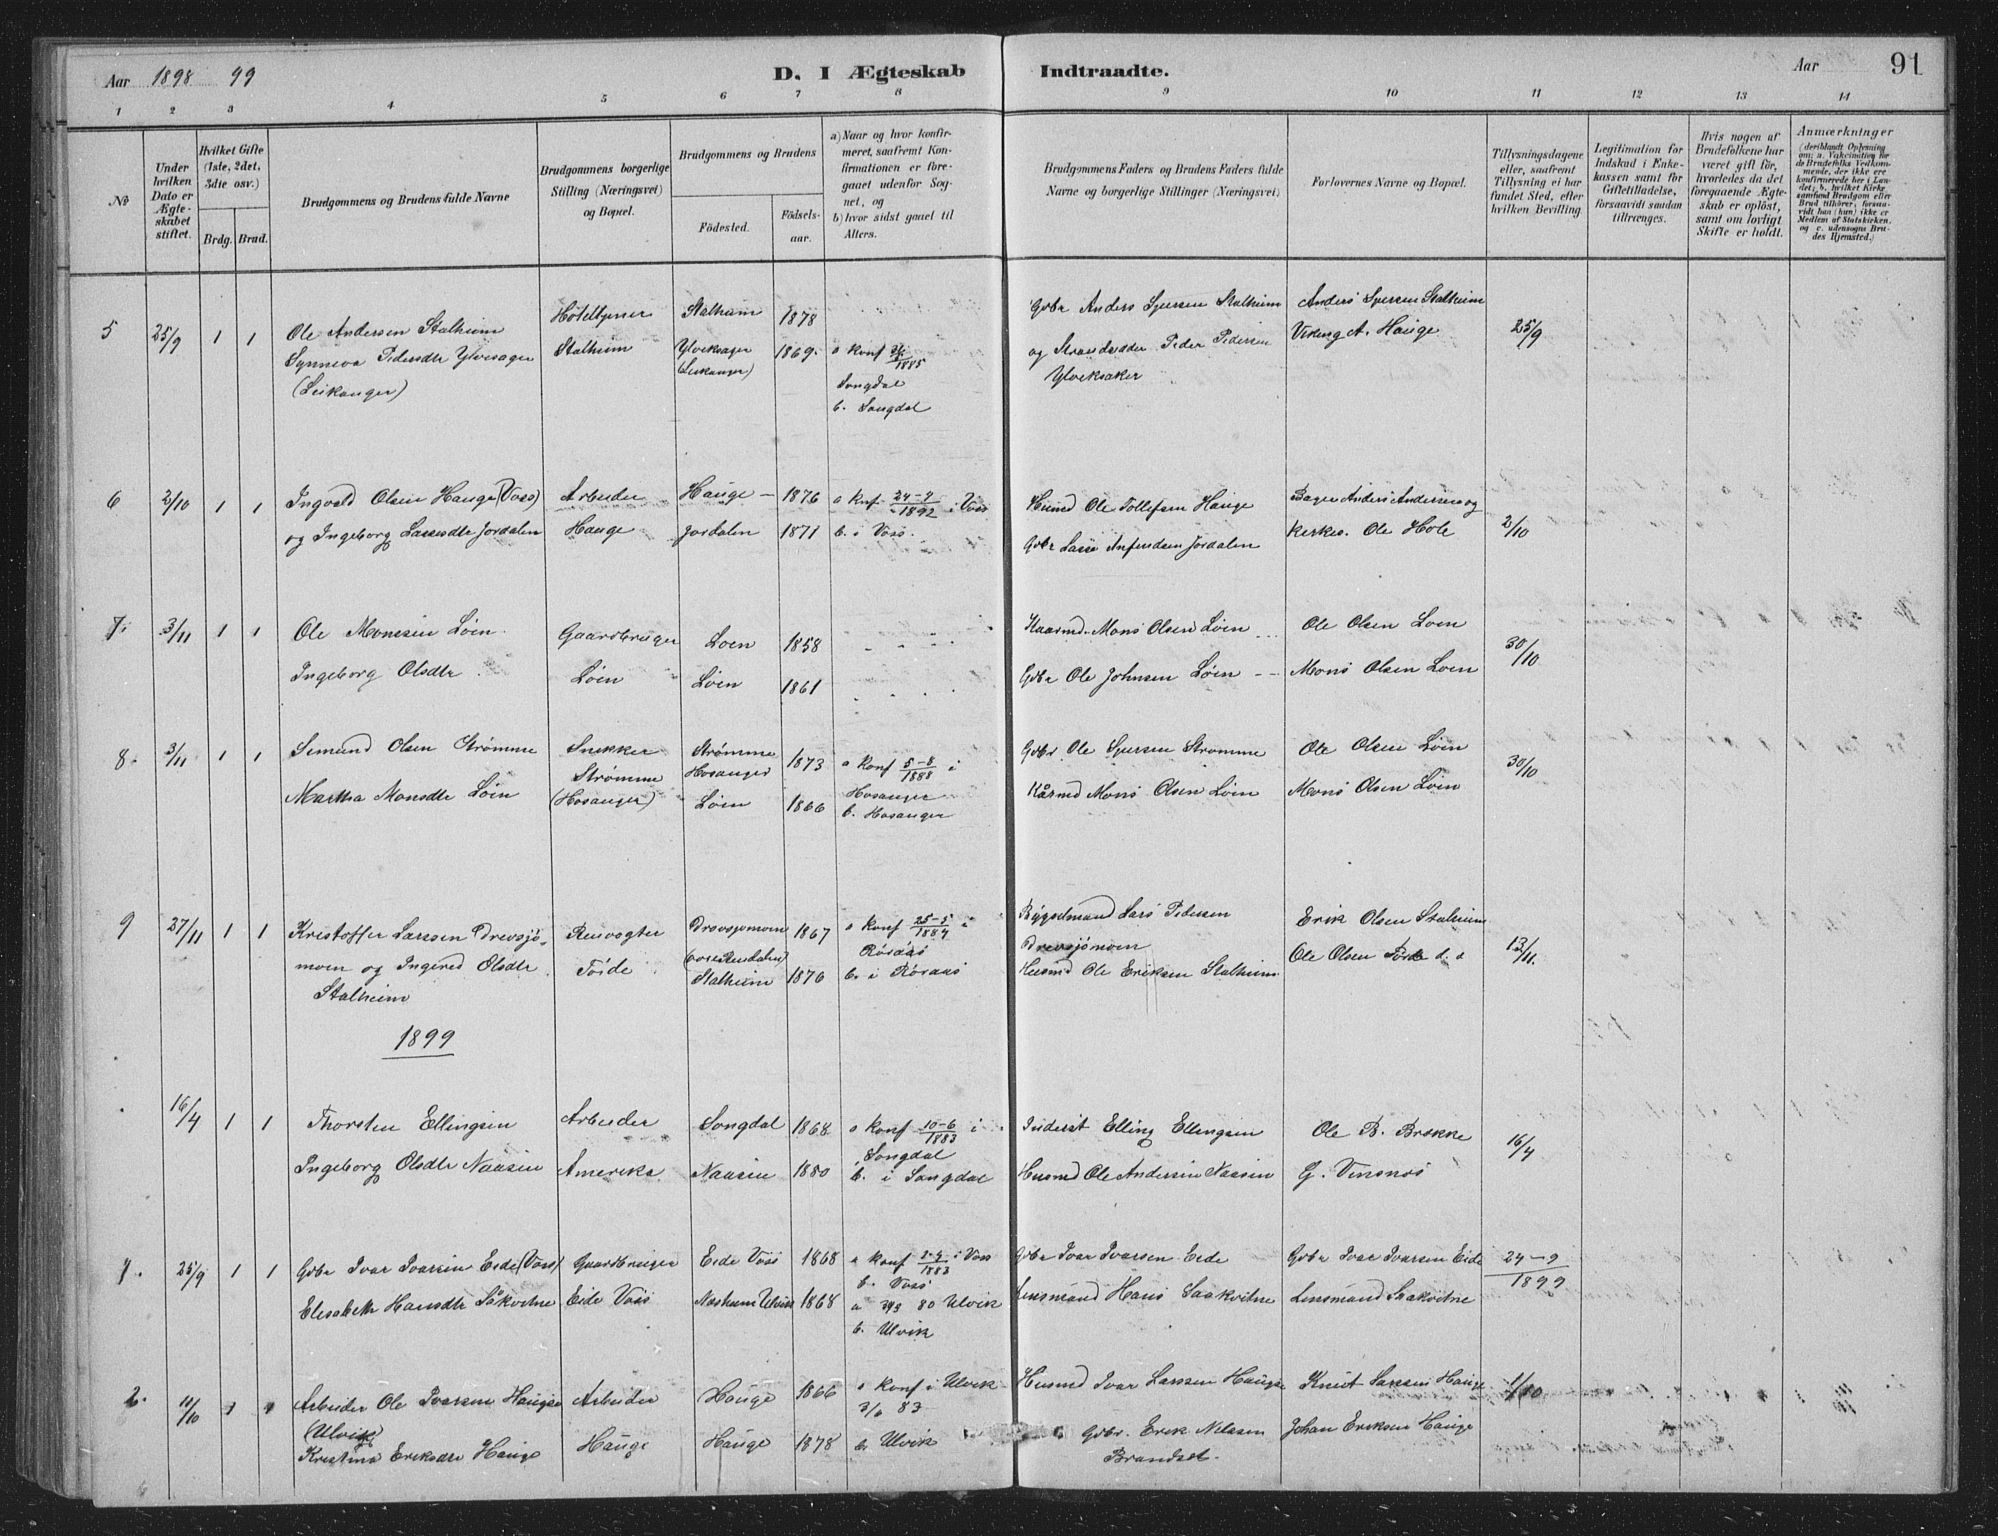 Aar 1898 99
D. I Ægteskab Indtraadte.
Aar
91
1 2 3 4 5 6 7 8 9 10 11 12 13 14
No
Under hvilken Dato er Ægteskabet stiftet.
Hvilket Gifte (1ste, 2det, 3die osv.)
Brdg. Brud.
Brudgommens og Brudens fulde Navne
Brudgommens borgerlige Stilling (Næringsvei) og Bopæl.
Brudgommens og Brudens
Födested.
Födselsaar.
a) Naar og hvor konfirmeret, saafremt Konfirmationen er foregaaet udenfor Sognet, og
b) hvor sidst gaaet til Alters.
Brudgommens Faders og Brudens Faders fulde Navne og borgerlige Stillinger (Næringsvei).
Forlovernes Navne og Bopæl.
Tillysningsdagene eller, saafremt Tillysning ei har fundet Sted, efter hvilken Bevilling.
Legitimation for Indskud i Enkekassen samt for Giftetilladelse, forsaavidt saadan tiltrænges.
Hvis nogen af Brudefolkene har været gift før, hvorledes da det foregaaende Ægteskab er opløst, samt om lovligt Skifte er holdt.
Anmærkninger (deriblandt Oplysning om: a. Vakcination for de Brudefolks Vedkommende, der ikke ere konfirmerede her i Landet; b. hvilket Kirkesamfund Brudgom eller Brud tilhører, forsaavidt han (hun) ikke er Medlem af Statskirken. og c. udensogns Brudes Hjemsted.)
5 25/9 1 1 Ole Andersen Stalheim Stalheim 1878 Gdbr Anders Sjursen Stalheim Anders Sjursen Stalheim 25/9
Synneva Pedersdtr Ylvesager Stalheim Ylveksager 1869. a konf 1885 og Strandsidder Peder Pedersen Viking A. Hauge
(Leikanger) (Leikanger) Songdal Ylveksaker
b. Songdal
6 2/10 1 1 Ingvald Olsen Hauge (Voss) Arbeider Hauge 1876 a konf 24-9/1892 i Voss Husmd Ole Tollefsen Hauge Anders Andersen og 2/10
og Ingeborg Larsdtr Jordalen Hauge Jordalen 1871 b. i Voss. Gdbr Lars Anfindsen Jordalen Kirkes. Ole Hole
7. 3/11 1 1 Ole Monssen Løen Gaardbruger Loen 1858 Kaarmd. Mons Olsen Løen Ole Olsen Loen 30/10
Ingeborg Olsdtr Løen Løen 1861 Gdbr Ole Johnsen Løen Mons Olsen Loen
8. 3/11 1 1 Simund Olsen Strømme Snekker Strømme Hosanger 1873 a konf 5-8/1888 i Gdbr. Ole Sjursen Strømme Ole Olsen Løen 30/10
Martha Monsdtr Løen Strømme (Hosanger) Løen 1866 Hosanger b. Hosanger Kårmd Mons Olsen Løen Mons Olsen Løen
9 27/11 1 1 Kristoffer Larssen Drevsjø- Renvogter Drevsjomoen 1867 a konf 25-5/1884 i Bygselmand Lars Pedersen Erik Olsen Stalheim 13/11.
moen og Ingered Olsdtr Røraas Drevsjømoen
Stalheim Stalheim 1876 b. i Røraas Husmd Ole Eriksen Stalheim Ole Olsen
1899
16/4 1 1 Thorsten Ellingsen Arbeider Songdal 1868 a konf 10-6/1883 i Songdal Inderst Elling Ellingsen Ole B. Brekke 16/4
Ingeborg Olsdtr Naasen Amerika Naasen 1880 b. i Songdal Husmd Ole Andersen Naasen G. Vinsnes
1. 25/9 1 1 Gdbr Ivar Ivarsen Eide (Voss) Gaardbruger Eide Voss 1868 a konf 1883 i Voss Gdbr Ivar Ivarsen Eide Gdbr Ivar Ivarsen Eide 24-9/1899
b. Voss
Elisabeth Hansdtr Såkvitne Eide Voss Ulvik 1868 a 80 Ulvik Lensmand Hans Saakvitne Lensmand Saakvitne
b. Ulvik
2. 10/10 1 1 Arbeider Ole Ivarsen Hauge Arbeider Hauge 1866 a konf i Ulvik 3/6 83 Husmd Ivar Larssen Hauge Knut Larssen Hauge 1/10
(Ulvik)
Kristina Eriksdtr Hauge Hauge Hauge 1878 b. Ulvik Gdbr. Erik Nilssen Brandset. Johan Eriksen Hauge